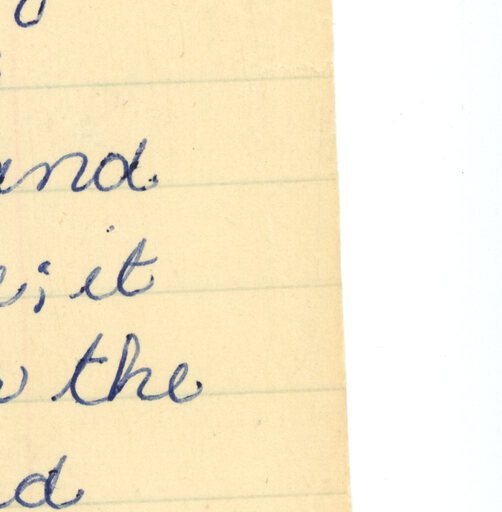 and
; it
the
d